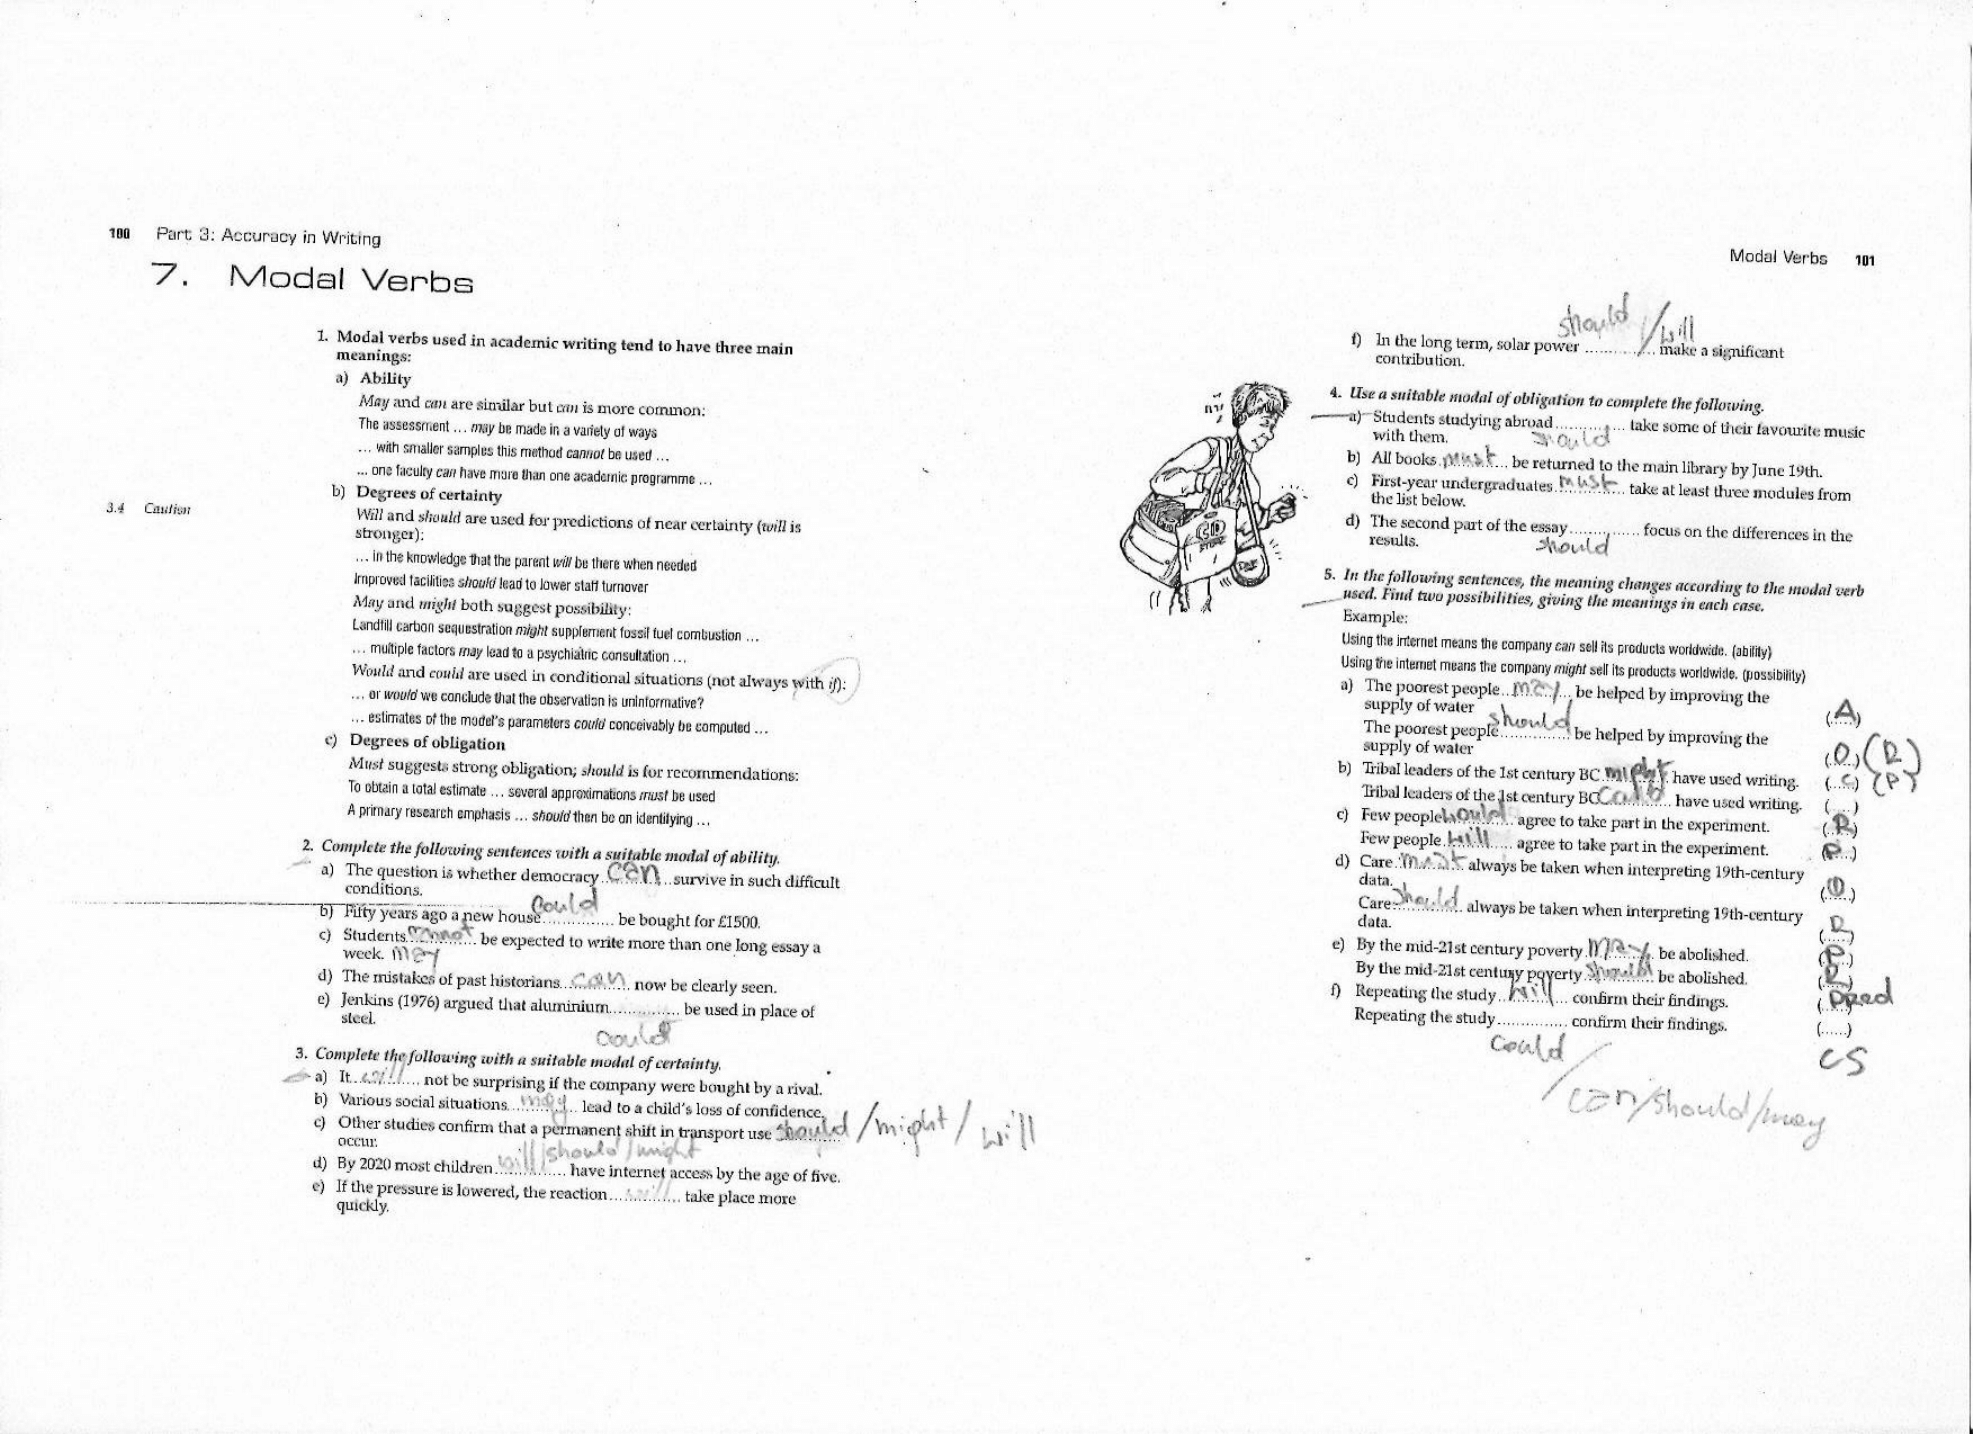 100 Part 3: Accuracy in Writing
7. Modal Verbs
1. Modal verbs used in academic writing tend to have three main
meanings:
a) Ability
May and can are similar but can is more common:
The assessment ... may be made in a variety of ways
... with smaller samples this method cannot be used ...
... one faculty can have more than one academic programme ...
b) Degrees of certainty
3.4 Caution
Will and should are used for predictions of near certainty (will is
stronger):
... in the knowledge that the parent will be there when needed
Improved facilities should lead to lower staff turnover
May and might both suggest possibility:
Landfill carbon sequestration might supplement fossil fuel combustion ...
... multiple factors may lead to a psychiatric consultation ...
Would and could are used in conditional situations (not always with if):
... or would we conclude that the observation is uninformative?
... estimates of the model's parameters could conceivably be computed ...
c) Degrees of obligation
Must suggests strong obligation; should is for recommendations:
To obtain a total estimate ... several approximations must be used
A primary research emphasis ... should then be on identifying ...
2. Complete the following sentences with a suitable modal of ability.
a) The question is whether democracy can survive in such difficult
conditions.
b) Fifty years ago a new house could be bought for £1500.
c) Students cannot be expected to write more than one long essay a
week. may
d) The mistakes of past historians can now be clearly seen.
e) Jenkins (1976) argued that aluminium .............. be used in place of
steel.
could
3. Complete the following with a suitable modal of certainty.
a) It will not be surprising if the company were bought by a rival.
b) Various social situations may lead to a child's loss of confidence.
c) Other studies confirm that a permanent shift in transport use should / might / will
occur.
will/should/might
d) By 2020 most children .............. have internet access by the age of five.
e) If the pressure is lowered, the reaction will take place more
quickly.
Modal Verbs 101
should / will
f) In the long term, solar power .............. make a significant
contribution.
4. Use a suitable modal of obligation to complete the following.
a) Students studying abroad .............. take some of their favourite music
with them. should
b) All books must be returned to the main library by June 19th.
c) First-year undergraduates must take at least three modules from
the list below.
d) The second part of the essay .............. focus on the differences in the
results. should
5. In the following sentences, the meaning changes according to the modal verb
used. Find two possibilities, giving the meanings in each case.
Example:
Using the internet means the company can sell its products worldwide. (ability)
Using the internet means the company might sell its products worldwide. (possibility)
a) The poorest people may be helped by improving the
supply of water (A)
The poorest people should be helped by improving the
supply of water (O) (R)
b) Tribal leaders of the 1st century BC might have used writing. (C) (P)
Tribal leaders of the 1st century BC could have used writing. (......)
c) Few people would agree to take part in the experiment. (R)
Few people will agree to take part in the experiment. (P)
d) Care must always be taken when interpreting 19th-century
data. (O)
Care should always be taken when interpreting 19th-century
data. (R)
e) By the mid-21st century poverty may be abolished. (P)
By the mid-21st century poverty should be abolished. (R)
f) Repeating the study will confirm their findings. (pred)
Repeating the study .............. confirm their findings. (......)
could / can/should/may
CS